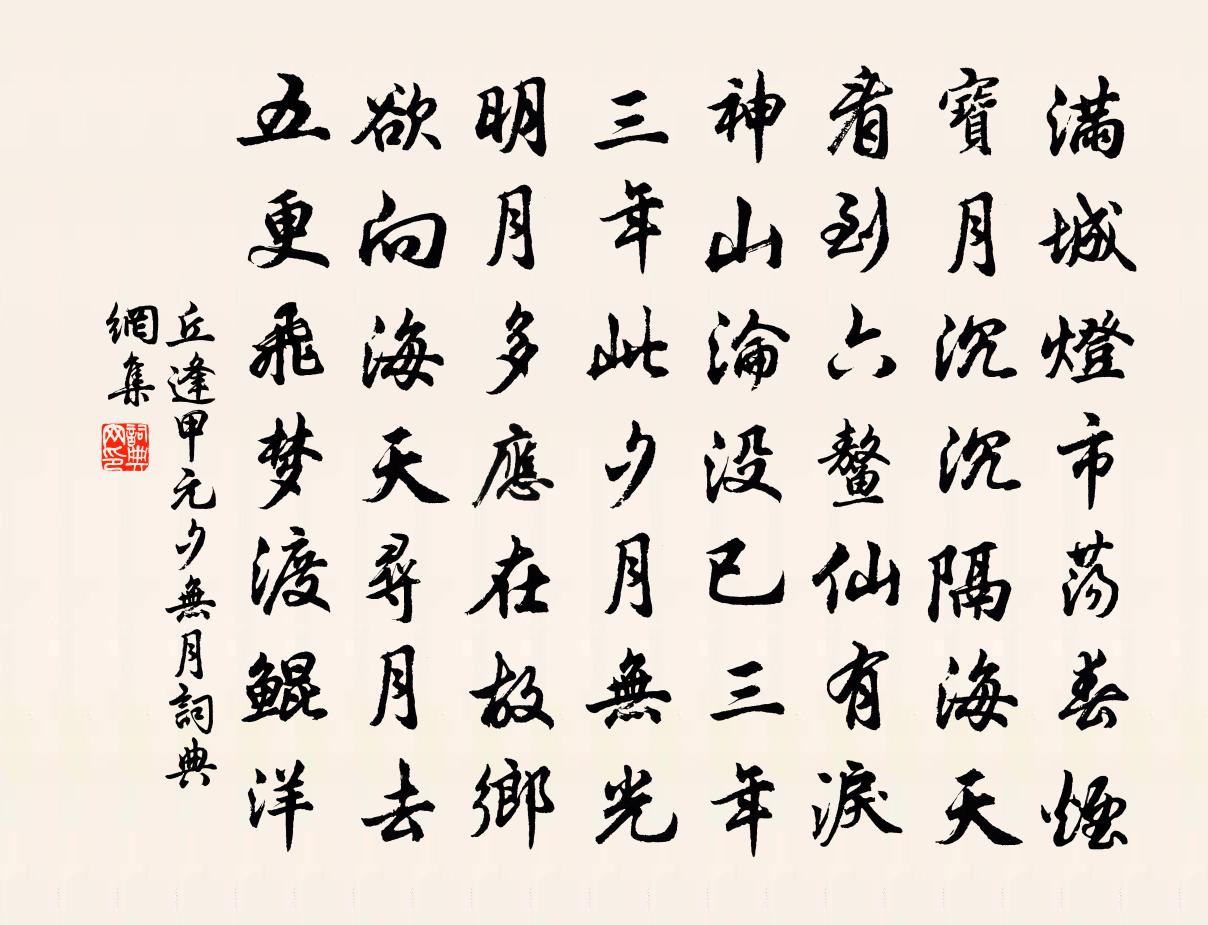 滿城燈市蕩春煙
寶月沉沉隔海天
看到六鰲仙有淚
神山淪沒已三年
三年此夕月無光
明月多應在故鄉
欲向海天尋月去
五更飛梦渡鯤洋
丘逢甲元夕無月詞典
網集
詞典
网印